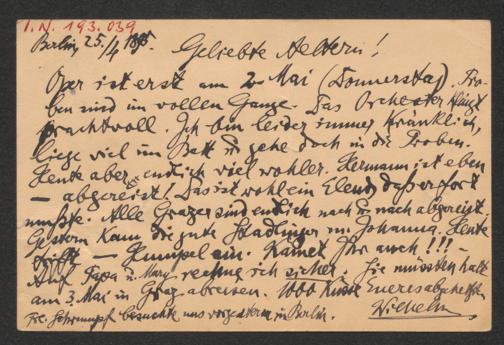 I.N. 193.039
Berlin, 25./4 1895.
Geliebte Aeltern!
Oper ist erst am 2. Mai (Donnerstag). Pro-
ben sind im vollen Gange. Das Orchester klingt
prachtvoll. Ich bin leider immer kränklich,
liege viel im Bett u. gehe doch in die Proben.
Heute aber endlich viel wohler. Hermann ist eben
– abgereist! Das ist wohl ein Elend, daß er fort
mußte. Alle Grazer sind endlich nach u. nach abgereist.
Gestern kam die gute Stadlinger mit Johanna. Heute
trifft – Humpel ein. Kämet Ihr auch!!! –
Auf Papa u. Mary rechne ich sicher. Sie müssten halt
am 3. Mai in Graz abreisen. 1000 Küsse Eueres abgehetzten
Wilhelm
Frl. Schrumpf besuchte uns vorgestern in Berlin.